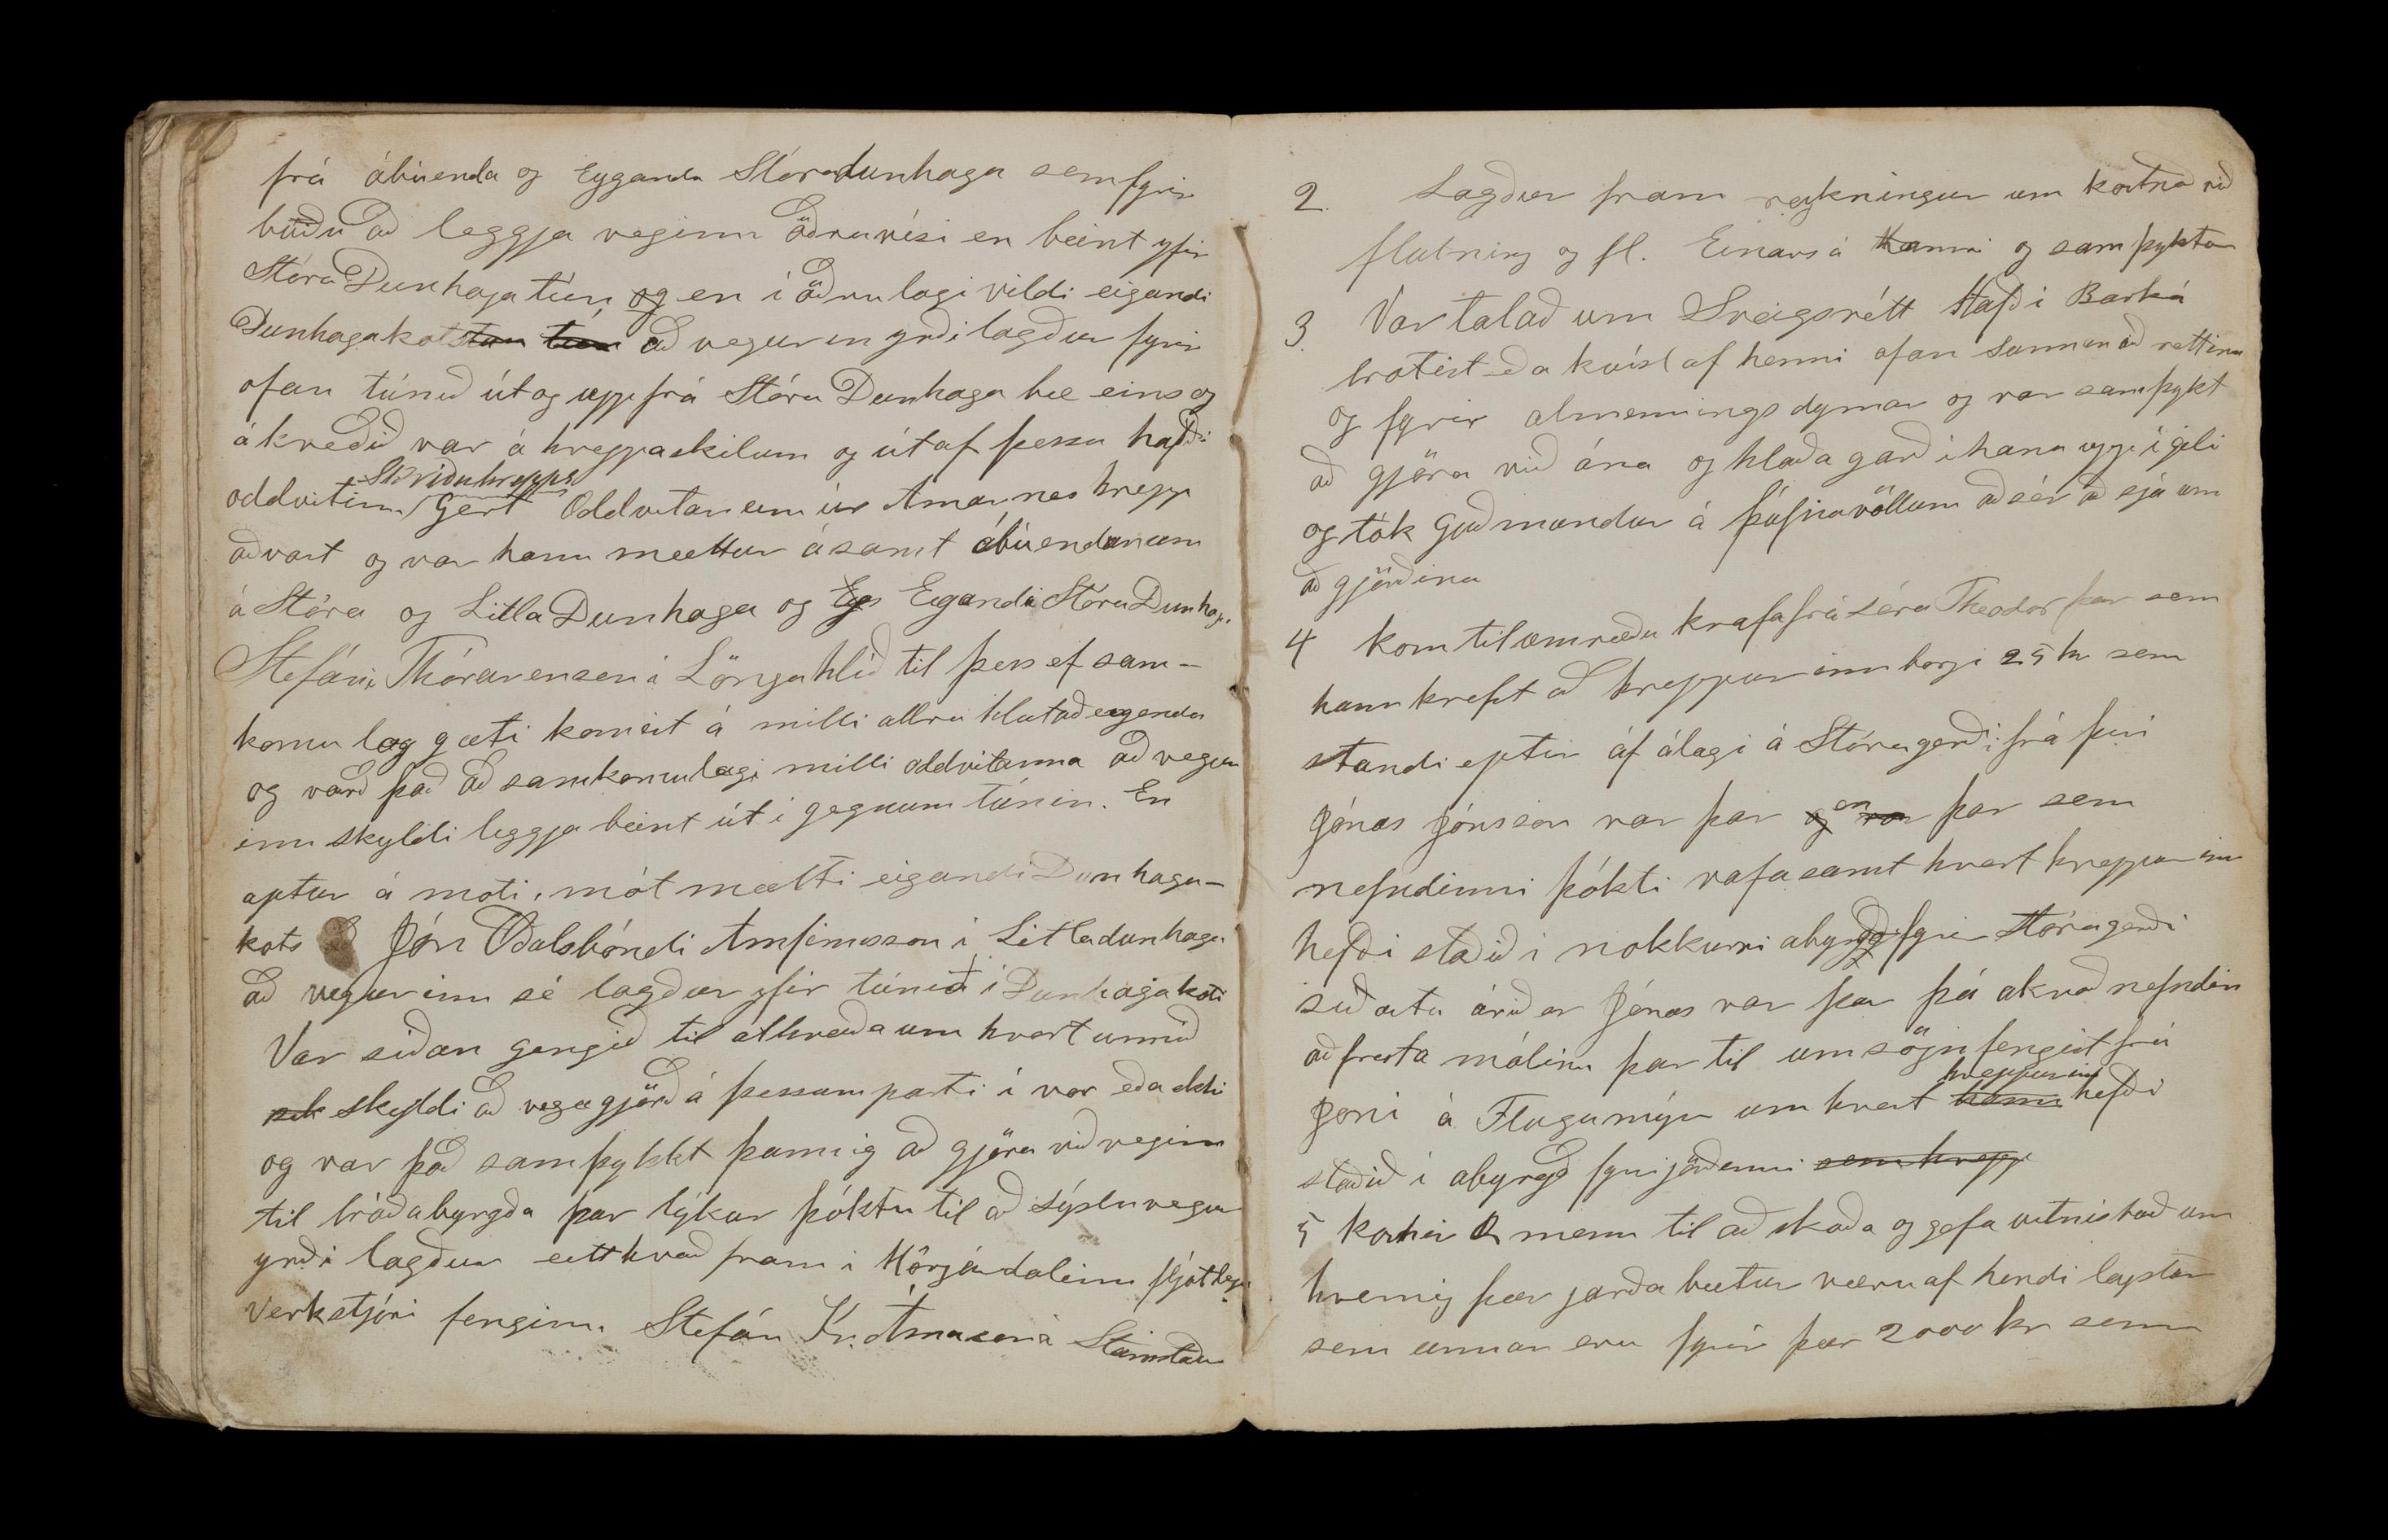 frá ábúenda og Eyganda Stóradunhaga semfyrir
búðu að leggja veginn öðruvísi en beint yfir
Stóra Dunhaga tún og en í öðru lagi vildi eigandi
Dunhagakotstan tún að vegurinn yrði lagður fyrir
ofan túnið út og upp frá Stóra Dunhaga bæ eins og
ákveðið var á hreppaskilum og útaf þessu hafði
Skriðuhrepps
oddvitinn gert Oddvitanum úr Arnarneshrepp
aðvart og var hann mættur ásamt ábúendunum
á Stóra og Litla Dunhaga og Eyg Eiganda Stóra Dunhaga
Stefáni Thórarensen í Lönguhlíð til þess ef sam-
komu lag gæti komist á milli allra hlutaðeigenda
og varð það að samkomulagi milli oddvitanna að vegur
inn skyldi leggja beint út í gegnum túnin. En
aptur á moti, mótmælti eigandi Dunhaga-
kots Jón Óðalsbóndi Arnfinnsson í Litladunhaga
að vegurinn sé lagður yfir túnið í Dunhagakoti
Var siðan gengið til atkvæða um hvort unnið
skyldi að vegagjörð á þessum parti í vor eða ekki
og var það samþykkt þannig að gjöra við veginn
til bráðabyrgða þar lýkur þóktu til að sýsluvegur
yrði lagður eitthvað fram í Hörgárdalinn fljótlega
Verkstjóri fenginn Stefán Kr. Árnason á Steinstöðum
2. Lagður fram reykningur um kostnað við
flutning og fl. Einars á Hamri og samþyktur
3. Var talað um Sveigsrétt Hafði Barká
brotist eða kvísl af henni ofan sunnan að rettinni
og fyrir almennings dyrnar og var samþykt
að gjöra við ána og hlaða garð í hana upp í gili
og tók Guðmundur á Þúfnavöllum að sér að sjá um
að gjörðina
4 kom til umræðu krafa frá séra Theodor þar sem
hann krefst að hreppurinn borgi 25 kr sem
standi eptir áf álagi á Stóragerði frá því
Jónas Jónsson var þar og en var þar sem
nefndinni þókti vafasamt hvort hreppurinn
hefði staðið í nokkurri abyrgð fyrir Stóragerði
siðastu árið er Jónas var þar þá akvað nefndin
að fresta málinu þar til umsögn fengist frá
Joni á Flugumýri um hvert hann hreppurinn hefði
staðið í abyrgð fyrir jörðinni sem hrepp
5 kosnir 2 menn til að skoða og gefa vitnisbað um
hvernig þær jarða bætur væru af hendi leystar
sem unnar eru fyrir þær 2000 kr sem